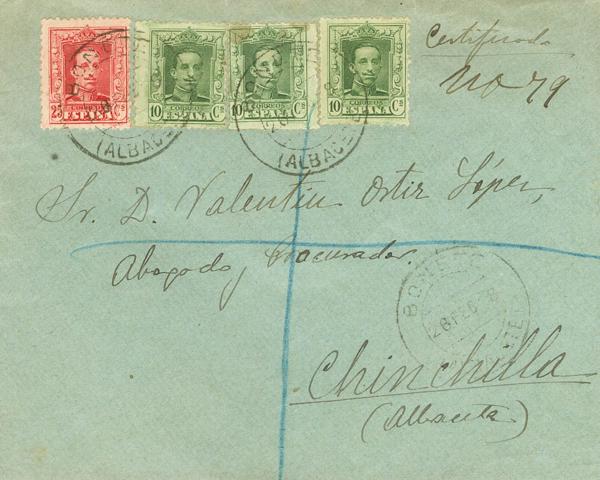 Certificado
No 79
25 CORREOS Cs
ESPAÑA
10 CORREOS Cs
ESPAÑA
10 CORREOS Cs
ESPAÑA
10 CORREOS Cs
ESPAÑA
(ALBACETE)
(ALBACETE)
Sr. D. Valentín Ortiz López,
Abogado, Procurador
BONETE
Chinchilla
(Albacete)